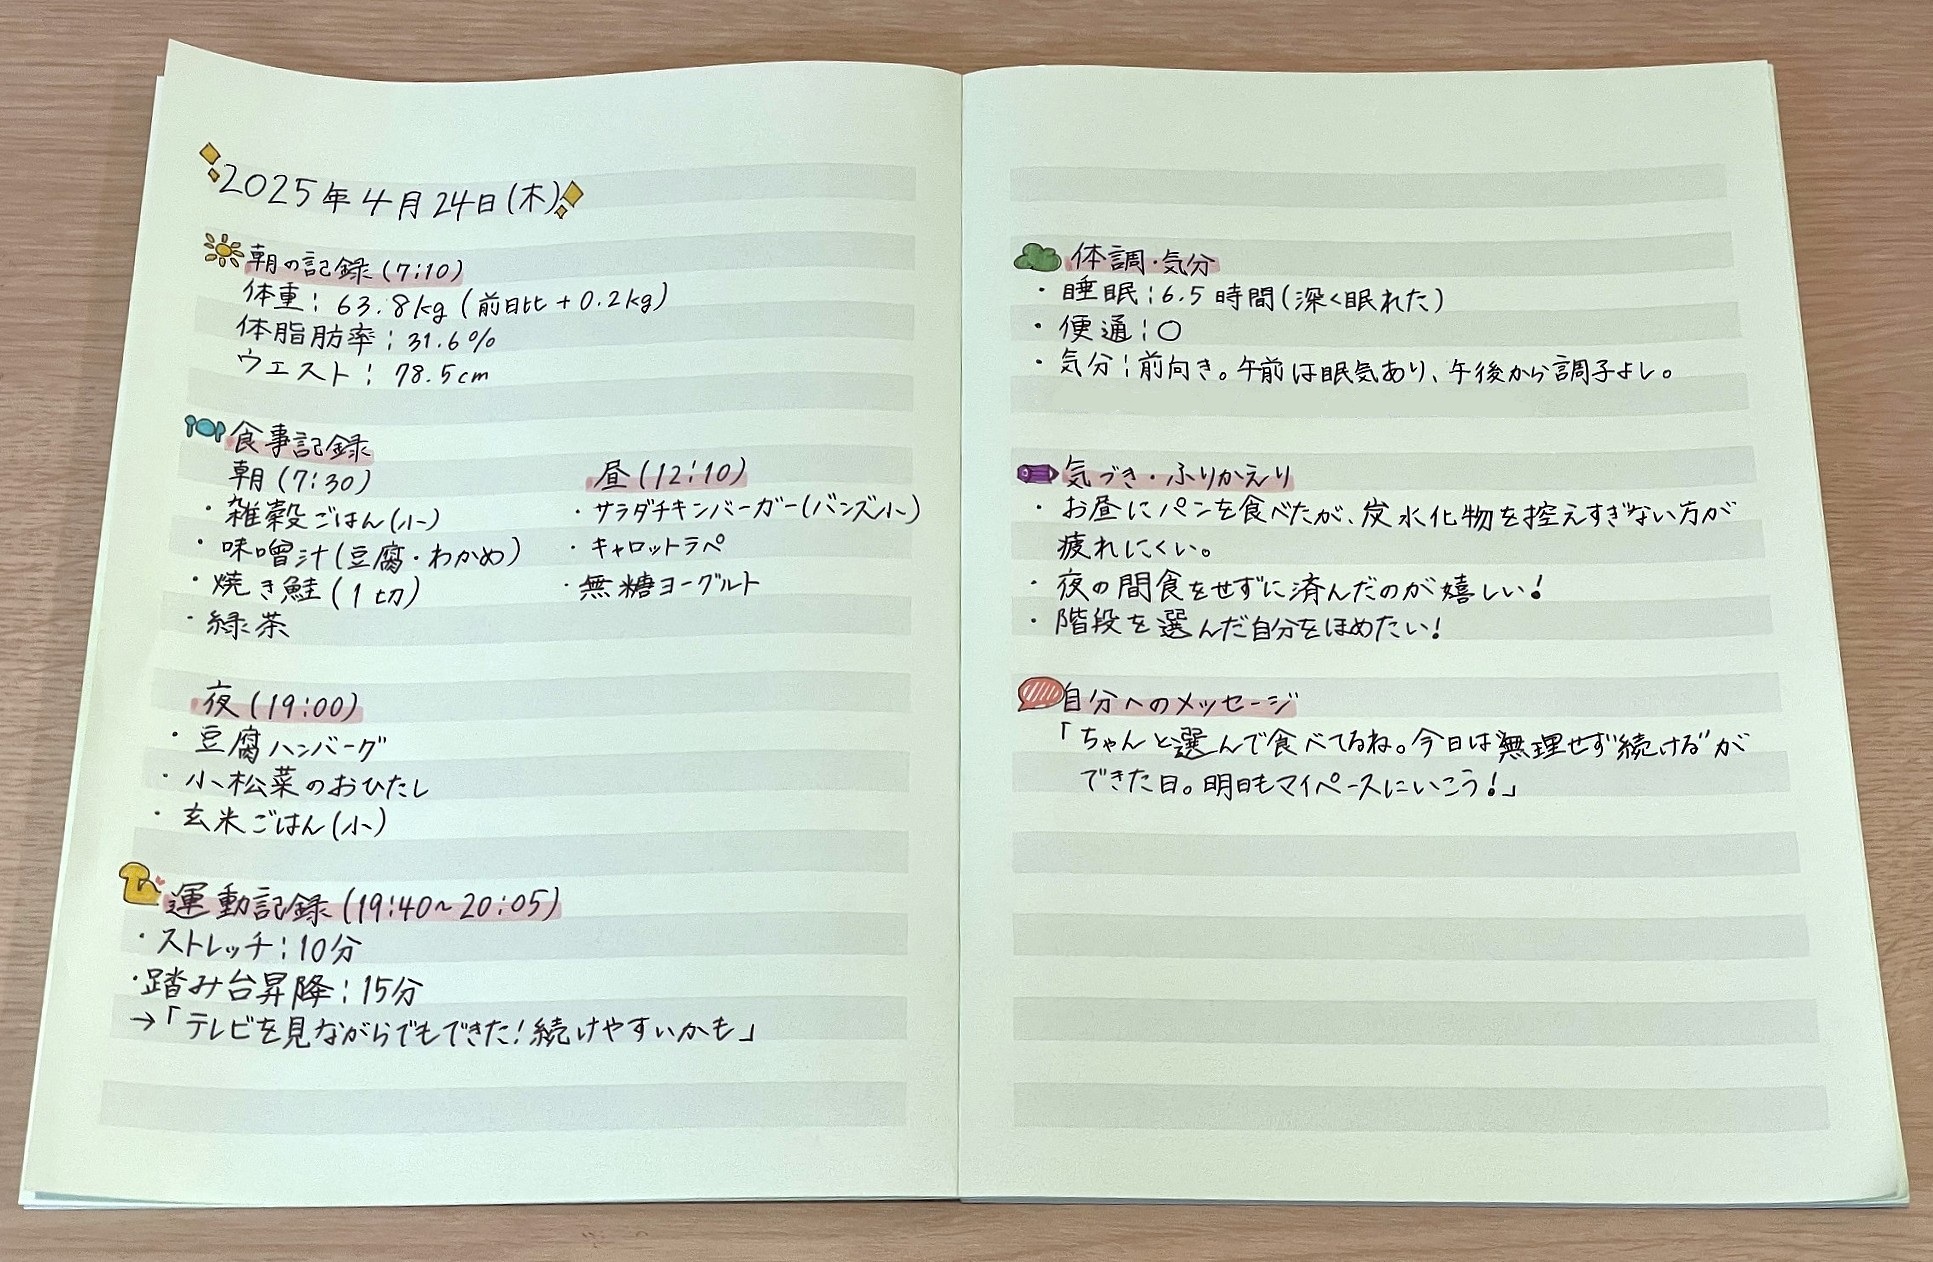 2025年4月24日(木)
朝の記録(7:10)
体重:63.8kg(前日比+0.2kg)
体脂肪率:31.6%
ウエスト:78.5cm
食事記録
朝(7:30)
・雑穀ごはん(小)
・味噌汁(豆腐・わかめ)
・焼き鮭(1切)
・緑茶
昼(12:10)
・サラダチキンバーガー(バンズ小)
・キャロットラペ
・無糖ヨーグルト
夜(19:00)
・豆腐ハンバーグ
・小松菜のおひたし
・玄米ごはん(小)
運動記録(19:40~20:05)
・ストレッチ:10分
・踏み台昇降:15分
→「テレビを見ながらでもできた!続けやすいかも」
体調・気分
・睡眠:6.5時間(深く眠れた)
・便通:○
・気分:前向き。午前は眠気あり、午後から調子よし。
気づき・ふりかえり
・お昼にパンを食べたが、炭水化物を控えすぎない方が
疲れにくい。
・夜の間食をせずに済んだのが嬉しい!
・階段を選んだ自分をほめたい!
自分へのメッセージ
「ちゃんと選んで食べてるね。今日は"無理せず続ける"が
できた日。明日もマイペースにいこう!」